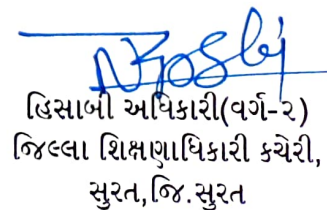 હિસાબી અધિકારી(વર્ગ-૨)
જિલ્લા શિક્ષણાધિકારી કચેરી,
સુરત,જિ.સુરત